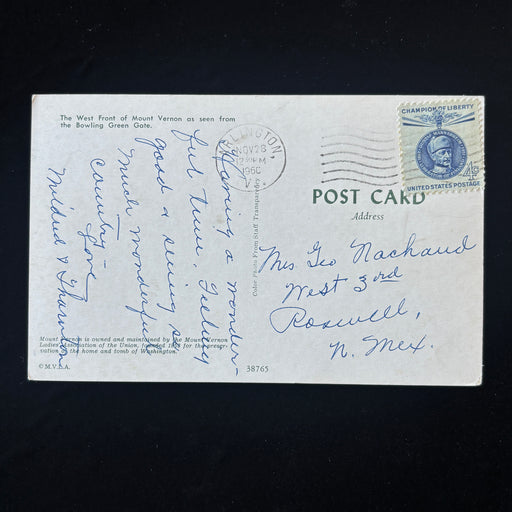 The West Front of Mount Vernon as seen from
the Bowling Green Gate.
Having a wonder-
ful time. Feeling
good & seeing so
much wonderful
country –
Love
Mildred &
Mount Vernon is owned and maintained by the Mount Vernon
Ladies' Association of the Union, founded for the preser-
vation of the home and tomb of Washington.
© M.V.L.A.
Color Photo From Staff Transparency
38765
ARLINGTON,
NOV 28
PM
1960
VA.
CHAMPION OF LIBERTY
4¢
UNITED STATES POSTAGE
POST CARD
Address
Mrs Geo Nachand
West 3rd
Roswell,
N. Mex.